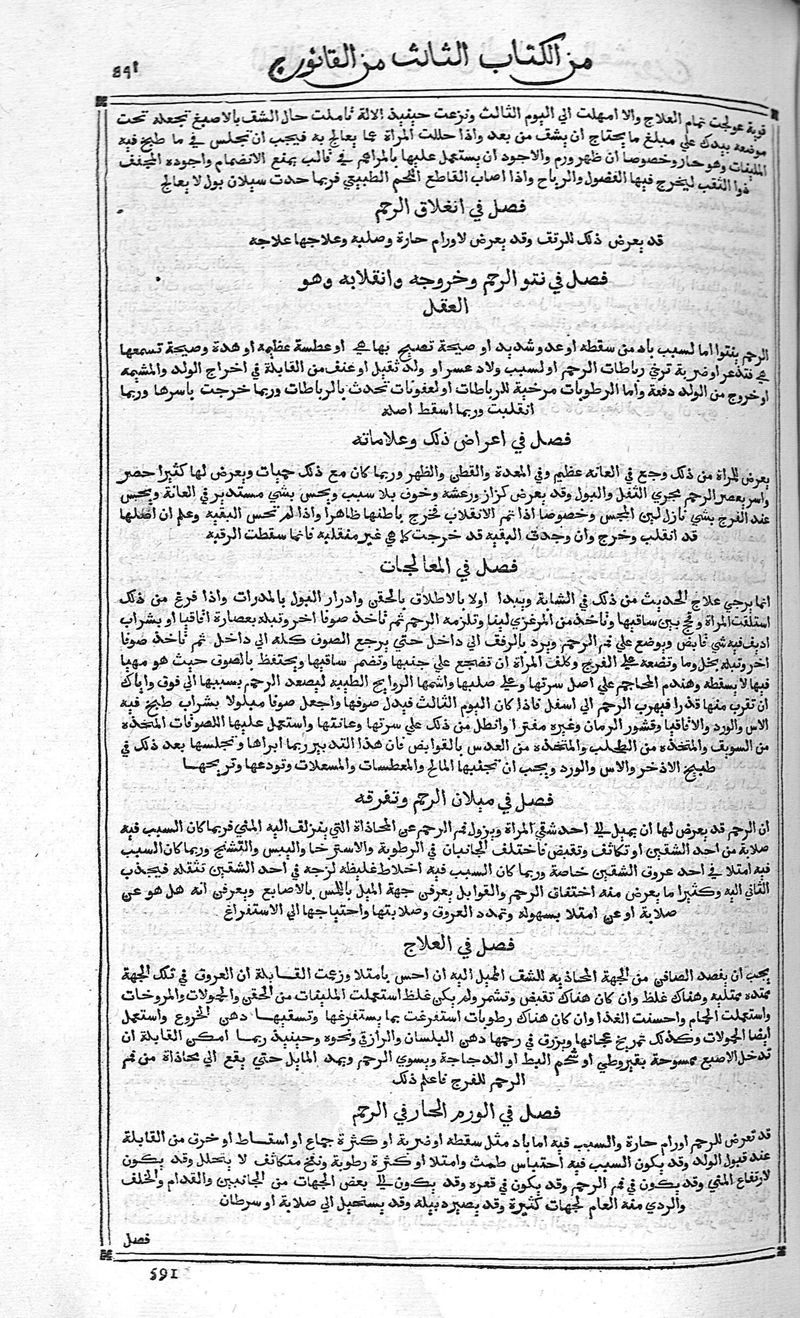 من الكتاب الثالث من القانون
٥٩١
قوية عولجت تمام العلاج والا امهلت الي اليوم الثالث ونزعت حينيذ الالة تاملت حال الشق بالاصبغ تجعله تحت
موضعه بيدك علي مبلغ ما يحتاج ان يشق من بعد واذا حللت المراة مما يعالج به فيجب ان تجلس في ما طبخ فيه
المليفات وهو حار وخصوصا ان ظهر ورم والاجود ان يستعمل عليها بالمراهم في قالب يمنع الانضمام واجوده المجفف
ذوا الثقب ليخرج فيها الفضول والرياح واذا اصاب القاطع اللحم الطبيعي فربما حدث سيلان بول لا يعالج
فصل في انغلاق الرحم
قد يعرض ذلك للرتق وقد يعرض لاورام حارة وصلبة وعلاجها علاجه
فصل في نتو الرحم وخروجه وانقلابه وهو
العقل
الرحم ينتوا اما لسبب باد من سقطه او عدو شديد او صيحة تصيح بها هي او عطسة عظيمه او هدة وصيحة تسمعها
هي فتذعر او ضربة ترخي رباطات الرحم او لسبب ولاد عسر او ولد ثقيل او عنف من القابلة في اخراج الولد والمشيمه
او خروج من الولد دفعة واما الرطوبات مرخية للرباطات او لعفونات تحدث بالرباطات وربما خرجت باسرها وربما
انقلبت وربما اسقط اصله
فصل في اعراض ذلك وعلاماته
يعرض للمراة من ذلك وجع في العانه عظيم وفي المعدة والقطن والظهر وربما كان مع ذلك حميات ويعرض لها كثيرا حصر
واسر بعصر الرحم مجري الثفل والبول وقد يعرض كزاز ورعشه وخوف بلا سبب ويحس بشي مستدير في العانة ويحس
عند الفرج بشي نازل لين المجس وخصوصا اذا تم الانقلاب فخرج باطنها ظاهرا واذا لم تحس البقيه وعلم ان اصلها
قد انقلب وخرج وان وجدت البقيه قد خرجت كما هي غير منقلبه فانما سقطت الرقبه
فصل في المعالجات
انما يرجي علاج الحديث من ذلك في الشابة ويبدا اولا بالاطلاق بالحقن وادرار البول بالمدرات واذا فرغ من ذلك
استلقت المراة وفحج بين ساقيها وتاخذ من المرعزي لينا وتلزمه الرحم ثم تاخذ صوفا اخر وتبله بعصارة اقاقيا او بشراب
اديف فيه شي قابض ويوضع علي فم الرحم ويرد بالرفق الي داخل حتي يرجع الصوف كله الي داخل ثم تاخذ صوفا
اخر وتبله بخل وما وتضعه علي الفرج وتكلف المراة ان تضجع علي جنبها وتضم ساقيها ويحتفظ بالصوف حيث هو مهيا
فيها لا يسقطه وهندم المحاجم علي اصل سرتها وعلي صلبها واشمها الروايح الطيبه ليصعد الرحم بسببها الي فوق واياك
ان تقرب منها قذرا فيهرب الرحم الي اسفل فاذا كان اليوم الثالث فبدل صوفها واجعل صوفا مبلولا بشراب طبخ فيه
الاس والورد والاقاقيا وقشور الرمان وغيره مفترا وانطل من ذلك علي سرتها وعانتها واستعمل عليها اللصوقات المتخذه
من السويق والمتخذه من الطحلب والمتخذه من العدس بالقوابض فان هذا التدبير ربما ابراها وتجلسها بعد ذلك في
طبيخ الاذخر والاس والورد ويجب ان تجنبها المالح والمعطسات والمسعلات وتودعها وتريحها
فصل في ميلان الرحم وتفرقه
ان الرحم قد يعرض لها ان يميل الي احد شقي المراة ويزول فم الرحم عن المحاذاة التي ينزلف اليه المني فربما كان السبب فيه
صلابة من احد الشقين او تكاثف وتقبض فاختلف الجانبان في الرطوبة والاسترخا واليبس والتشنج وربما كان السبب
فيه امتلا في احد عروق الشقين خاصة وربما كان السبب فيه اخلاط غليظه لزجة في احد الشقين تثقله فيجذب
الثاني اليه وكثيرا ما يعرض منه اختناق الرحم والقوابل يعرفن جهة الميل باللمس بالاصابع ويعرفن انه هل هو عن
صلابة او عن امتلا بسهوله وتمدد العروق وصلابتها واحتياجها الي الاستفراغ
فصل في العلاج
يجب ان يفصد الصافن من الجهة المحاذية للشق الممیل اليه ان احس بامتلا وزعمت القابلة ان العروق في تلك الجهة
ممتده ممتليه وهناك غلظ وان كان هناك تقبض وتشمر ولم يكن غلظ استعملت المليفات من الحقن والحمولات والمروخات
واستعملت الحمام واحسنت الغذا وان كان هناك رطوبات استفرغت بما يستفرغها وتسقيها دهن الخروع واستعمل
ايضا الحمولات وكذلك تمريخ عجانها ويزرق في رحمها دهن البلسان والرازقي ونحوه وحينيذ ربما امكن القابلة ان
تدخل الاصبع ممسوحة بقيروطي او شحم البط او الدجاجة ويسوي الرحم ويمد المايل حتي يقع الي محاذاة من فم
الرحم للفرج فاعلم ذلك
فصل في الورم الحار في الرحم
قد تعرض للرحم اورام حارة والسبب فيه اما باد مثل سقطه او ضربة او كثرة جماع او اسقاط او خرق من القابلة
عند قبول الولد وقد يكون السبب فيه احتباس طمث وامتلا او كثرة رطوبة ونفخ متكاثف لا يتحلل وقد يكون
لارتفاع المني وقد يكون في فم الرحم وقد يكون في قعره وقد يكون الي بعض الجهات من الجانبين والقدام والخلف
والردي منه العام لجهات كثيرة وقد يصير دبيله وقد يستحيل الي صلابة او سرطان
فصل
591